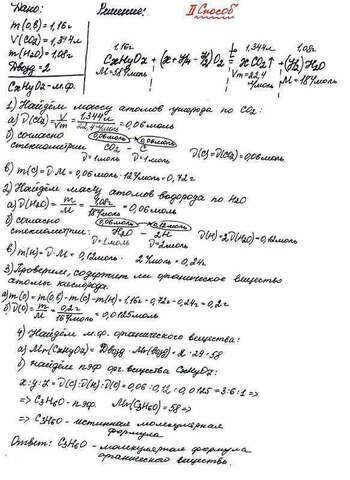 Дано: Решение: II Способ
m(о.в) = 1,16г
V(CO₂) = 1,344л
m(H₂O) = 1,08г
Dвозд = 2
CxHyOz - м.ф.
1,16г 1,344л 1,08г
CxHyOz + (x+y/4-z/2)O₂ = xCO₂↑ + (y/2)H₂O
M=58г/моль Vm=22,4 л/моль M=18г/моль
1) Найдём массу атомов углерода по CO₂:
а) ν(CO₂) = V/Vm = 1,344л/22,4л/моль = 0,06моль
б) согласно 0,06моль 0,06моль
стехиометрии: CO₂ - C ν(C)=ν(CO₂)=0,06моль
ν=1моль ν=1моль
в) m(C) = ν·M = 0,06моль · 12г/моль = 0,72г
2) Найдём массу атомов водорода по H₂O
а) ν(H₂O) = m/M = 1,08г/18г/моль = 0,06моль
б) согласно 0,06моль 0,12моль
стехиометрии: H₂O - 2H ν(H)=2ν(H₂O)=0,12моль
ν=1моль ν=2моль
в) m(H) = ν·M = 0,12моль · 2г/моль = 0,24г
3) Проверим, содержит ли органическое вещество
атомы кислорода.
а) m(O) = m(о.в) - m(C) - m(H) = 1,16г - 0,72г - 0,24г = 0,2г
б) ν(O) = m/M = 0,2г/16г/моль = 0,0125моль
4) Найдём м.ф. органического вещества:
а) Mr(CxHyOz) = Dвозд · Mr(возд) = 2·29=58
б) Найдём пэф орг. вещества CxHyOz:
x:y:z = ν(C):ν(H):ν(O) = 0,06:0,12:0,0125 = 3:6:1 =>
=> C₃H₆O - пэф. Mr(C₃H₆O) = 58 =>
=> C₃H₆O - истинная молекулярная
формула
Ответ: C₃H₆O - молекулярная формула
органического вещества.